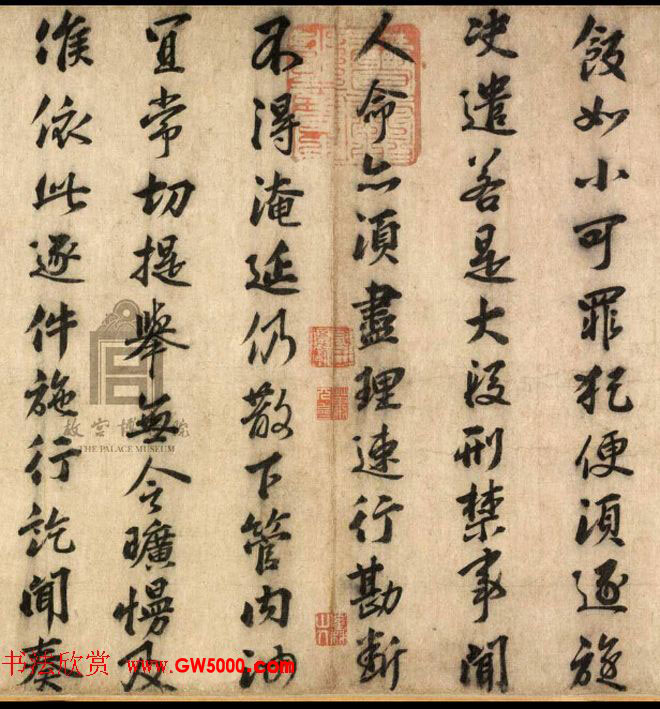 飯如小可罪犯便須逐旋
决遣若是大段刑禁事關
人命亦須盡理速行勘断
不得淹延仍散下管内
宜常切提舉無令曠慢及
依此逐件施行訖聞奏
故宫博物院
THE PALACE MUSEUM
书法欣赏 www.GW5000.com